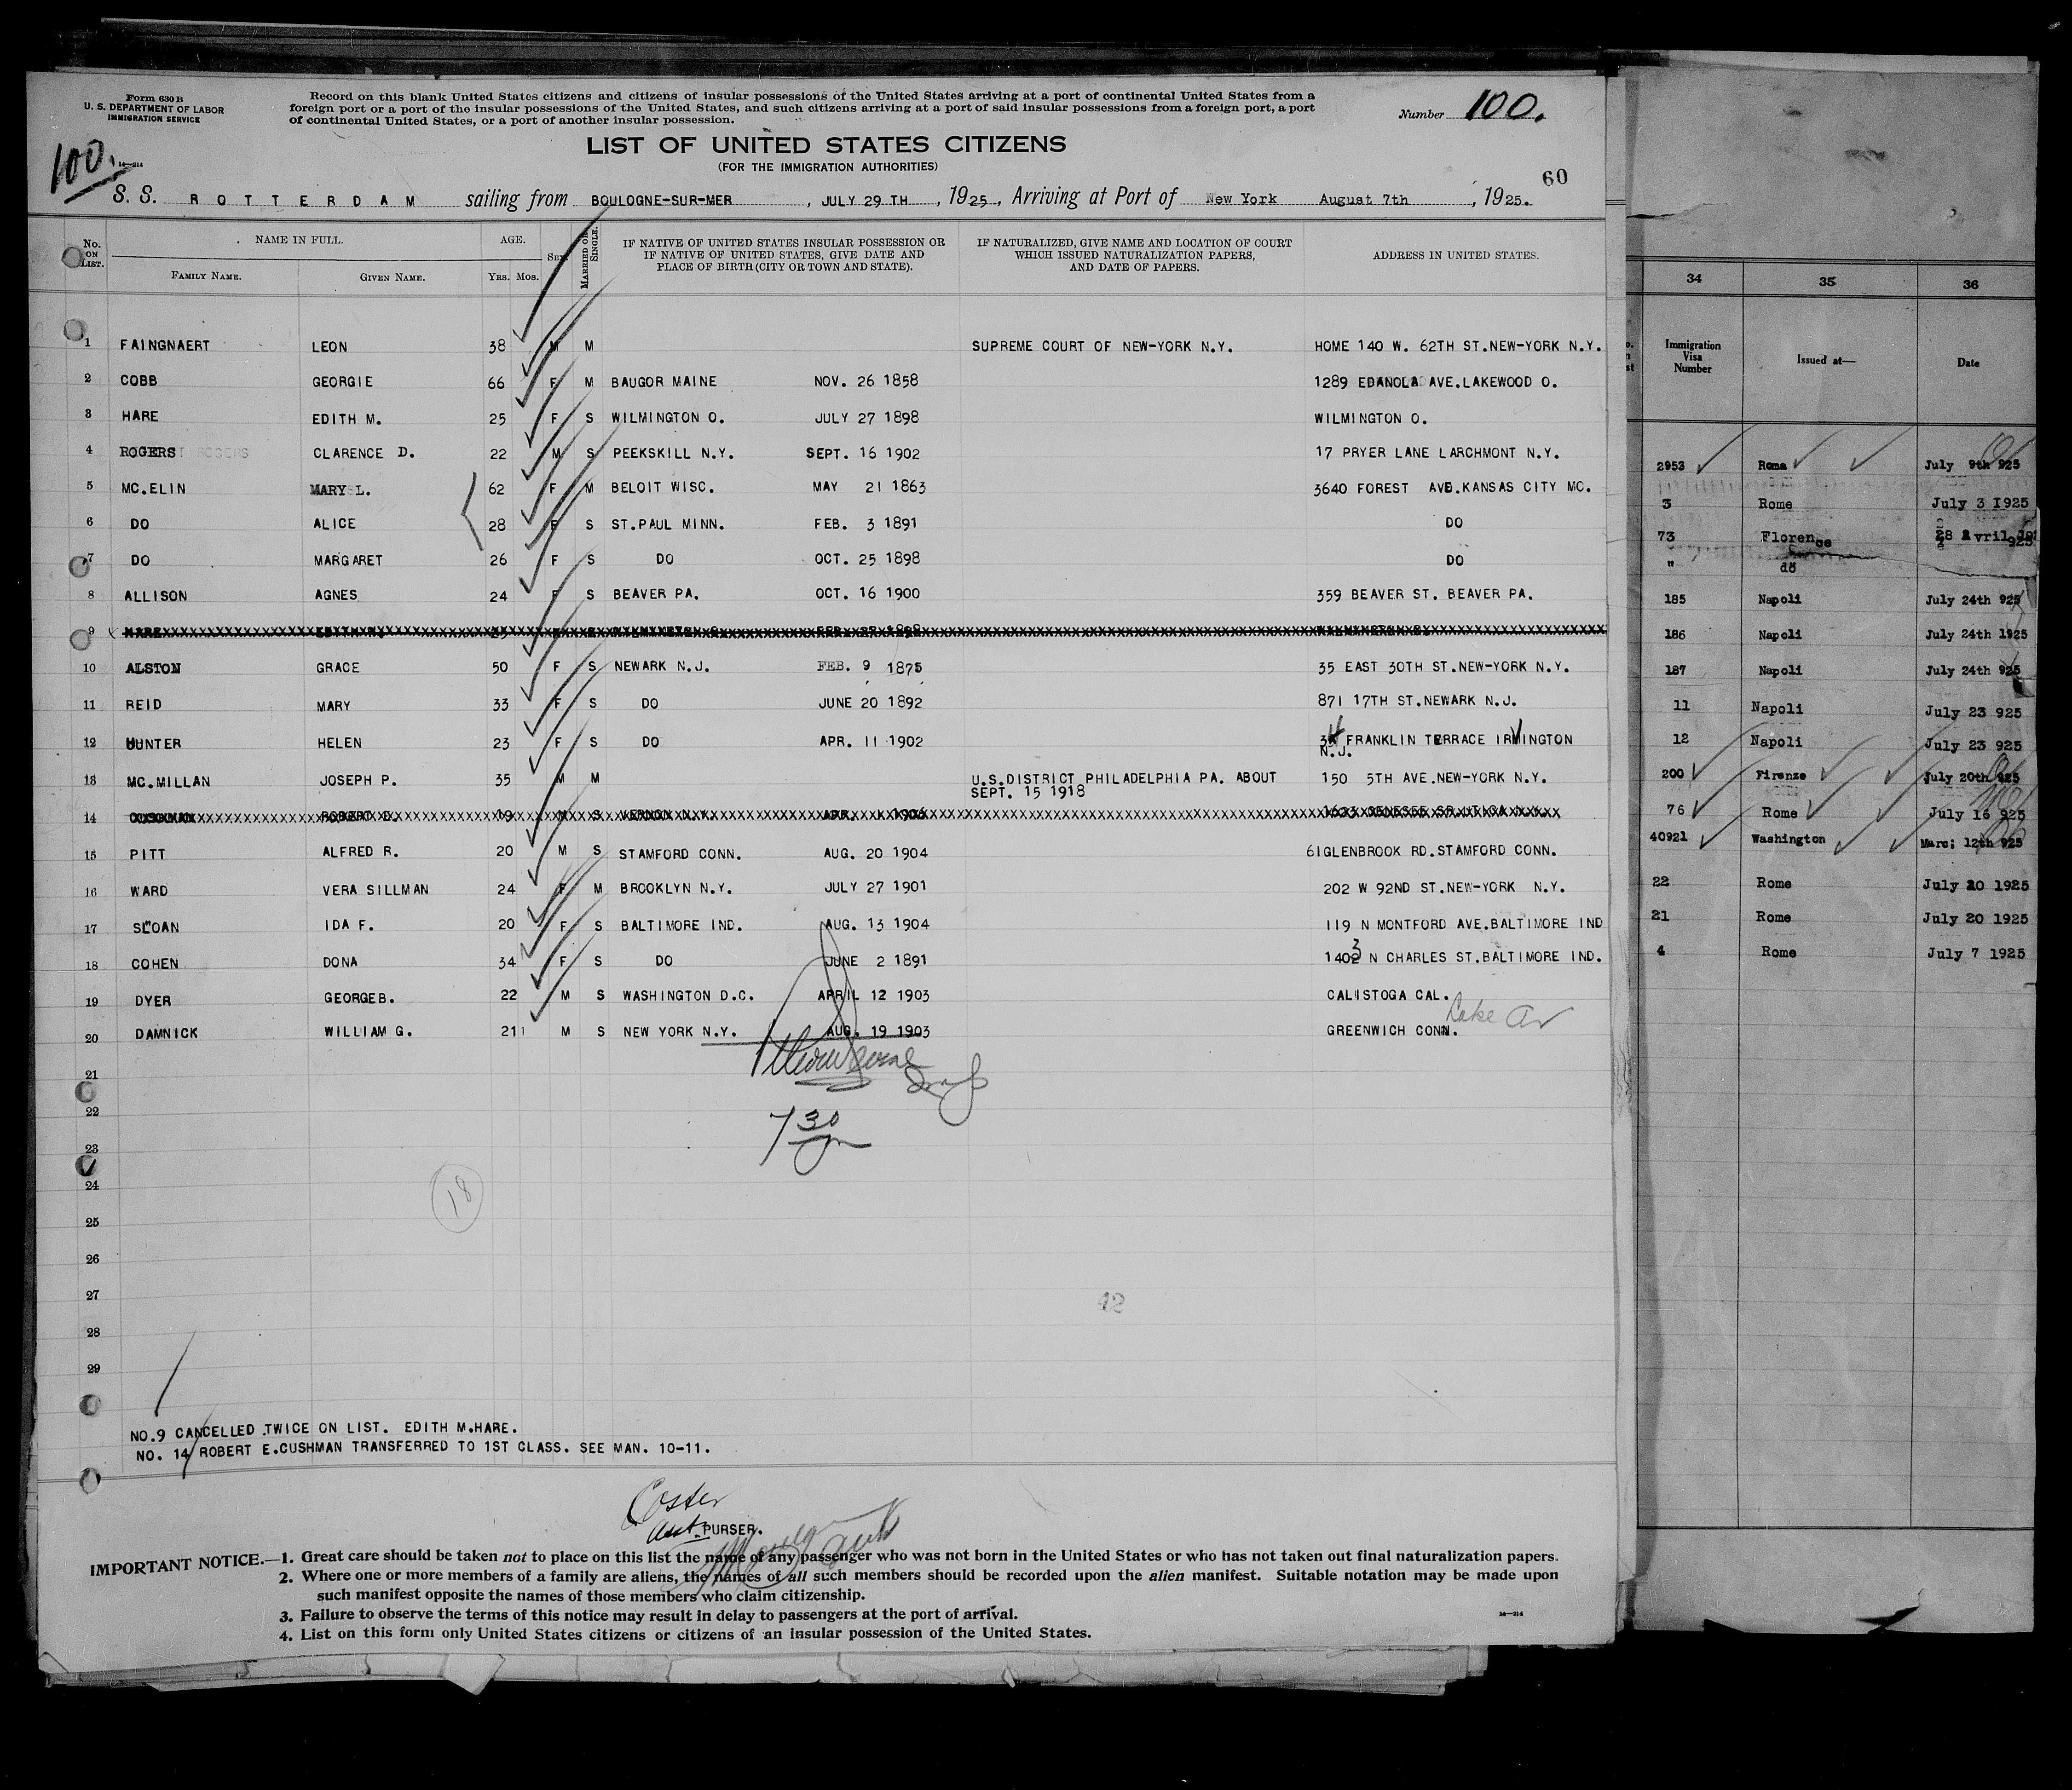 Form 630 B
U. S. DEPARTMENT OF LABOR
IMMIGRATION SERVICE
Record on this blank United States citizens and citizens of insular possessions of the United States arriving at a port of continental United States from a
foreign port or a port of the insular possessions of the United States, and such citizens arriving at a port of said insular possessions from a foreign port, a port
of continental United States, or a port of another insular possession.
Number 100.
100.
14—214
LIST OF UNITED STATES CITIZENS
(FOR THE IMMIGRATION AUTHORITIES)
60
S. S. ROTTERDAM sailing from BOULOGNE-SUR-MER, JULY 29 TH, 1925, Arriving at Port of New York August 7th, 1925.
No. ON LIST. NAME IN FULL. FAMILY NAME. GIVEN NAME. AGE. YRS. MOS. SEX. MARRIED OR SINGLE. IF NATIVE OF UNITED STATES INSULAR POSSESSION OR IF NATIVE OF UNITED STATES, GIVE DATE AND PLACE OF BIRTH (CITY OR TOWN AND STATE). IF NATURALIZED, GIVE NAME AND LOCATION OF COURT WHICH ISSUED NATURALIZATION PAPERS, AND DATE OF PAPERS. ADDRESS IN UNITED STATES.
1 FAINGNAERT LEON 38 M M SUPREME COURT OF NEW-YORK N.Y. HOME 140 W. 62TH ST.NEW-YORK N.Y.
2 COBB GEORGIE 66 F M BAUGOR MAINE NOV. 26 1858 1289 EDANOLA AVE.LAKEWOOD O.
3 HARE EDITH M. 25 F S WILMINGTON O. JULY 27 1898 WILMINGTON O.
4 ROGERS CLARENCE D. 22 M S PEEKSKILL N.Y. SEPT. 16 1902 17 PRYER LANE LARCHMONT N.Y.
5 MC.ELIN MARY L. 62 F M BELOIT WISC. MAY 21 1863 3640 FOREST AVE.KANSAS CITY MO.
6 DO ALICE 28 F S ST.PAUL MINN. FEB. 3 1891 DO
7 DO MARGARET 26 F S DO OCT. 25 1898 DO
8 ALLISON AGNES 24 F S BEAVER PA. OCT. 16 1900 359 BEAVER ST. BEAVER PA.
9 HARE EDITH M.
10 ALSTON GRACE 50 F S NEWARK N.J. FEB. 9 1875 35 EAST 30TH ST.NEW-YORK N.Y.
11 REID MARY 33 F S DO JUNE 20 1892 871 17TH ST.NEWARK N.J.
12 HUNTER HELEN 23 F S DO APR. 11 1902 FRANKLIN TERRACE IRVINGTON
N.J.
13 MC.MILLAN JOSEPH P. 35 M M U.S.DISTRICT PHILADELPHIA PA. ABOUT 150 5TH AVE.NEW-YORK N.Y.
SEPT. 15 1918
14 CUSHMAN ROBERT E. 19 M S VERNON N.Y. APR. 1906 1633 GENESEE UTICA N.Y.
15 PITT ALFRED R. 20 M S STAMFORD CONN. AUG. 20 1904 61GLENBROOK RD.STAMFORD CONN.
16 WARD VERA SILLMAN 24 F M BROOKLYN N.Y. JULY 27 1901 202 W 92ND ST.NEW-YORK N.Y.
17 SLOAN IDA F. 20 F S BALTIMORE IND. AUG. 13 1904 119 N MONTFORD AVE.BALTIMORE IND
18 COHEN DONA 34 F S DO JUNE 2 1891 1403 N CHARLES ST.BALTIMORE IND.
19 DYER GEORGEB. 22 M S WASHINGTON D.C. APRIL 12 1903 CALISTOGA CAL.
Lake Av
20 DAMNICK WILLIAM G. 21 M S NEW YORK N.Y. AUG. 19 1903 GREENWICH CONN.
21
22
7 30
23
24
18
25
26
27
42
28
29
NO.9 CANCELLED TWICE ON LIST. EDITH M.HARE.
NO. 14 ROBERT E.CUSHMAN TRANSFERRED TO 1ST CLASS. SEE MAN. 10-11.
Coster
PURSER.
IMPORTANT NOTICE.—1. Great care should be taken not to place on this list the name of any passenger who was not born in the United States or who has not taken out final naturalization papers.
2. Where one or more members of a family are aliens, the names of all such members should be recorded upon the alien manifest. Suitable notation may be made upon
such manifest opposite the names of those members who claim citizenship.
3. Failure to observe the terms of this notice may result in delay to passengers at the port of arrival.
4. List on this form only United States citizens or citizens of an insular possession of the United States.
14—214
34 35 36
Immigration Visa Number Issued at— Date
2953 Roma July 9th 925
3 Rome July 3 1925
73 Florence 28 Avril 925
" do
185 Napoli July 24th 925
186 Napoli July 24th 1925
187 Napoli July 24th 925
11 Napoli July 23 925
12 Napoli July 23 925
200 Firenze July 20th 925
76 Rome July 16 925
40921 Washington Mars; 12th 925
22 Rome July 20 1925
21 Rome July 20 1925
4 Rome July 7 1925